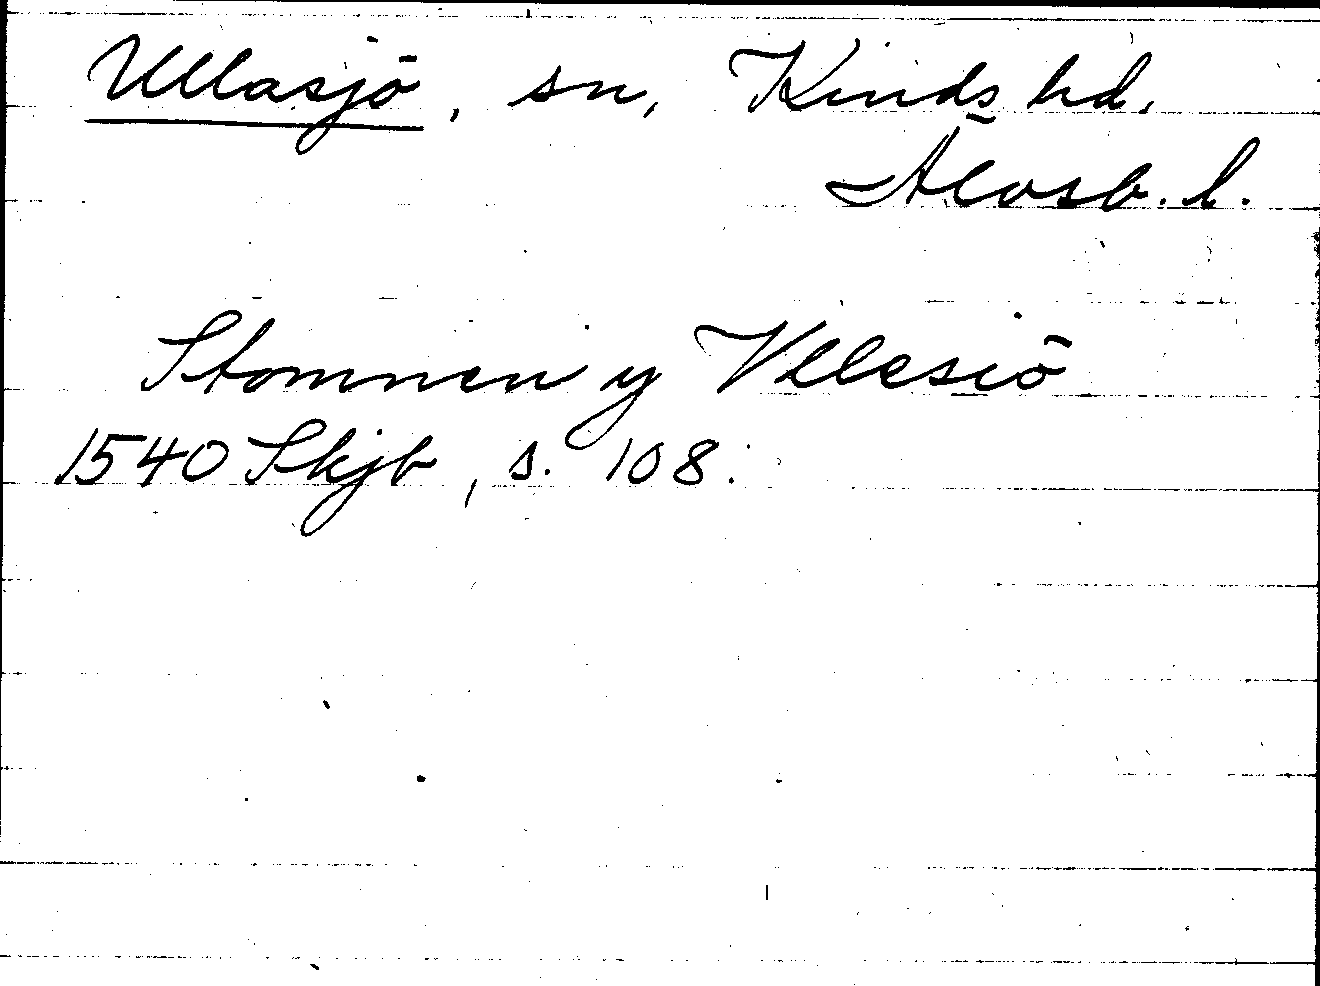 Ullasjö, sn, Kinds hd,
Älvsb. l.
Stomnen y Vllesiö
1540 Skjb, s. 108.